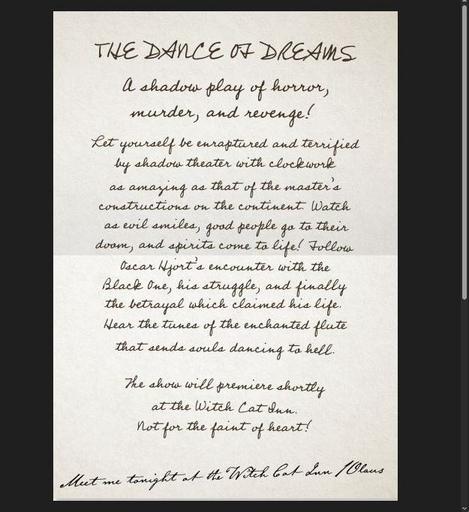 THE DANCE OF DREAMS
A shadow play of horror,
murder, and revenge!
Let yourself be enraptured and terrified
by shadow theater with clockwork
as amazing as that of the master's
constructions on the continent. Watch
as evil smiles, good people go to their
doom, and spirits come to life! Follow
Oscar Hjort's encounter with the
Black One, his struggle, and finally
the betrayal which claimed his life.
Hear the tunes of the enchanted flute
that sends souls dancing to hell.
The show will premiere shortly
at the Witch Cat Inn.
Not for the faint of heart!
Meet me tonight at the Witch Cat Inn /Olaus